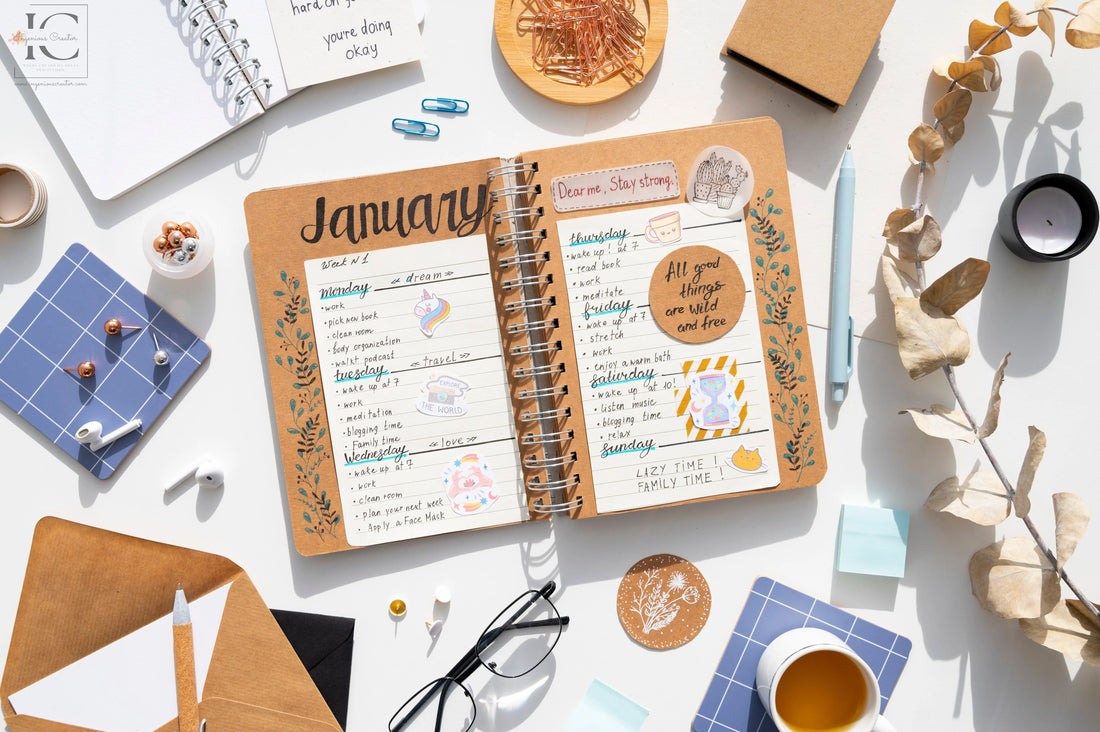 IC
Ingenious Creator
www.ingeniouscreator.com
you're doing
okay
January
Week N1
Monday
«dream»
• work
• pick new book
• clean room
• body organization
• walk+ podcast
Tuesday
«travel»
• wake up at 7
• work
• meditation
• blogging time
• Family time
EXPLORE
THE WORLD
Wednesday
«love»
• wake up at 7
• work
• clean room
• plan your next week
• Apply a Face Mask
Dear me, Stay strong.
thursday
• wake up! at 7
• read book
• work
• meditate
All good
things
are wild
and free
friday
• wake up at 7
• stretch
• work
• enjoy a warm bath
saturday
• wake up at 10!
• listen music
• blogging time
• relax
sunday
LAZY TIME!
FAMILY TIME!